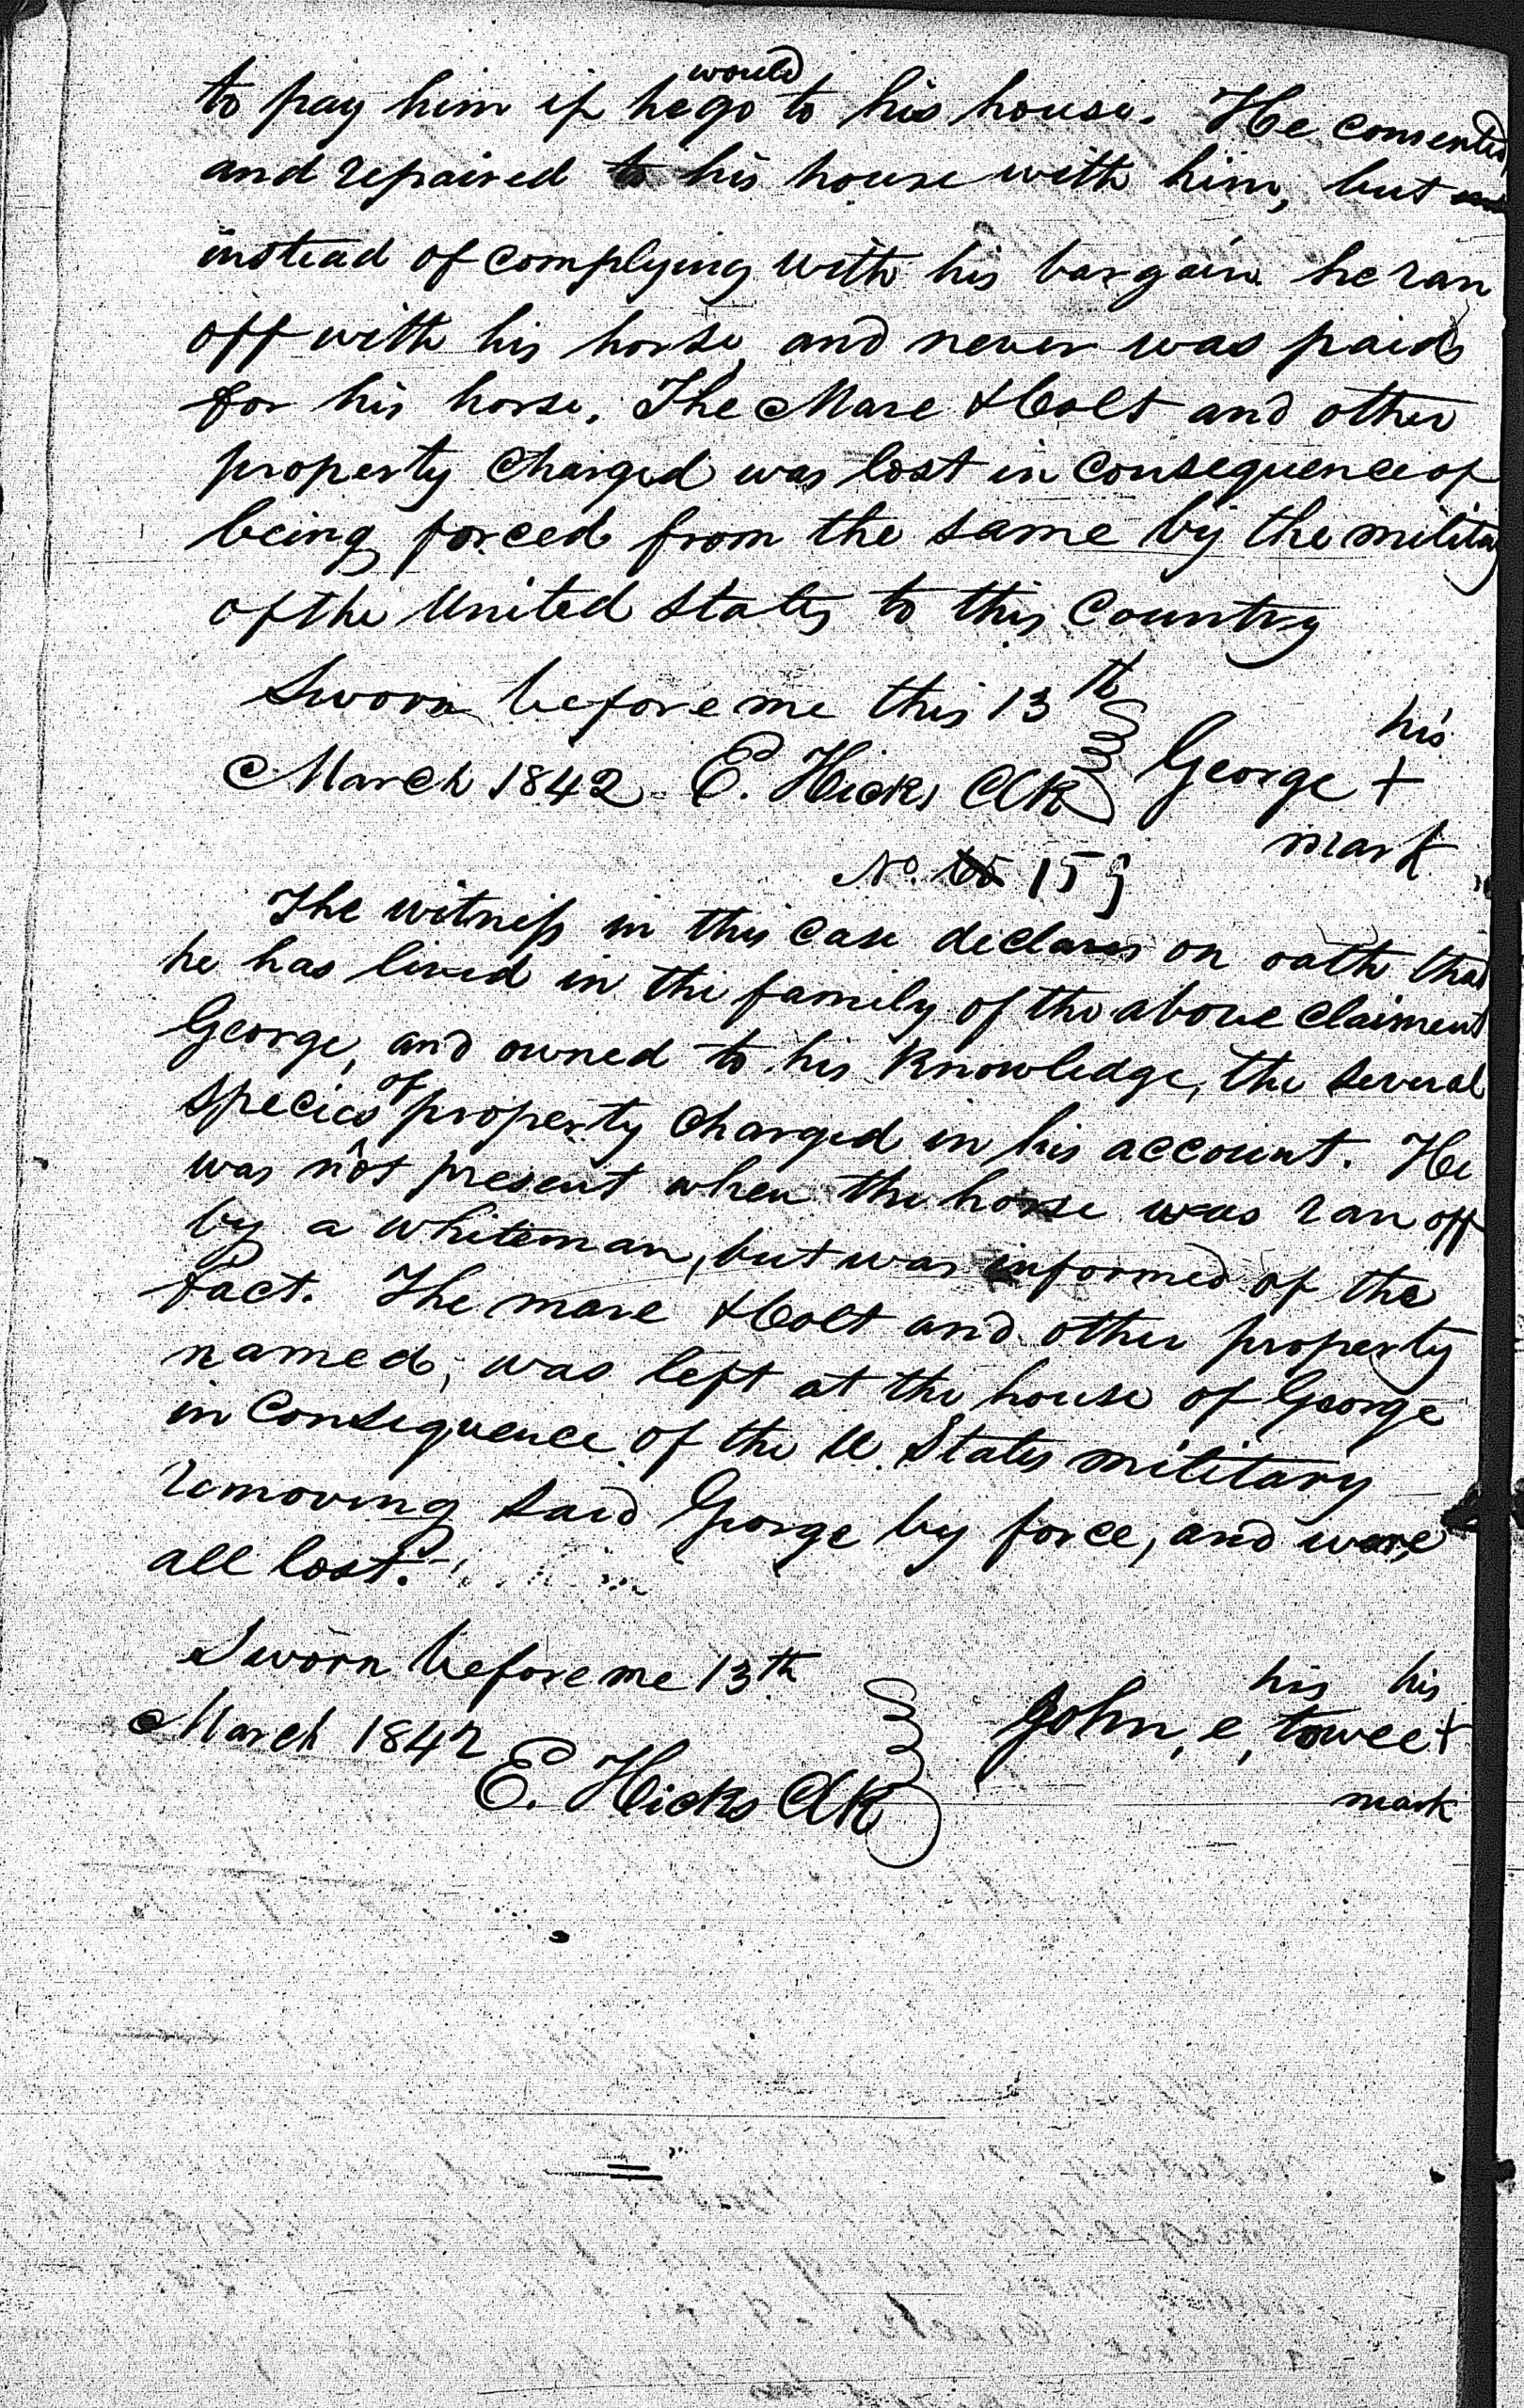 to pay him if he would go to his house. He consented
and repaired to his house with him, but
instead of complying with his bargain he ran
off with his horse, and never was paid
for his horse. The Mare & Colt and other
property charged was lost in consequence of
being forced from the same by the military
of the United States to this Country
Sworn before me this 13th
his
March 1842 - E. Hicks Clk George +
mark
No. 159
The witness in this case declares on oath that
he has lived in the family of the above claiment
George, and owned to his knowledge, the several
species of property charged in his account. He
was not present when the horse was ran off
by a whiteman, but was informed of the
fact. The mare & Colt and other property
named, was left at the house of George
in Consequence of the U. States military
removing said George by force, and were
all lost.
Sworn before me 13th
his his
March 1842 John, e, towee +
E. Hicks Clk mark